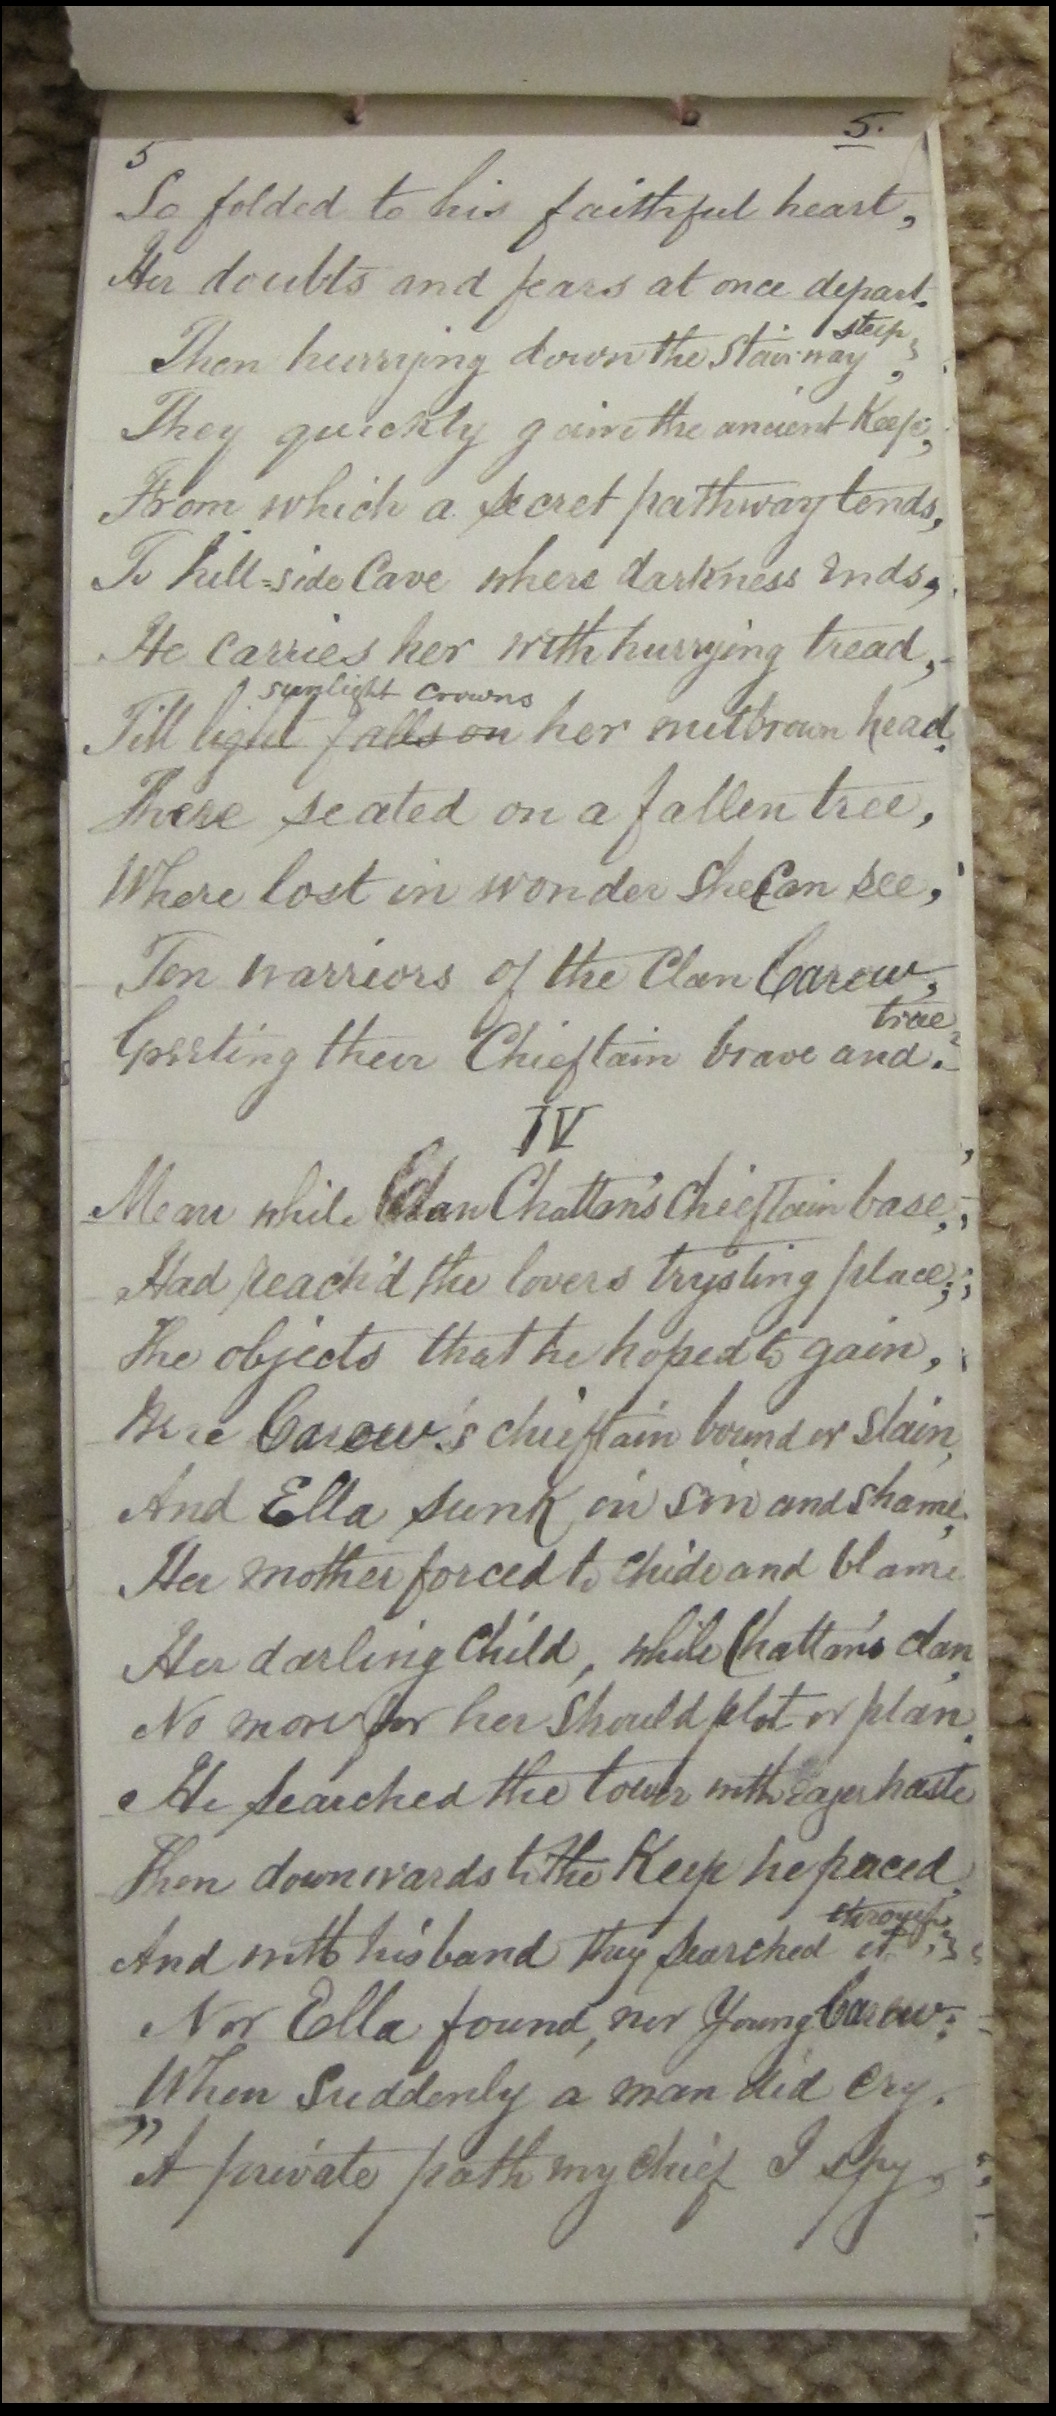 5
5.
So folded to his faithful heart,
Her doubts and fears at once depart.
Then hurrying down the stairway steep,
They quickly gain the ancient Keep,
From which a secret pathway tends,
To hill-side Cave where darkness ends,
He carries her with hurrying tread,
sunlight crowns
Till light falls on her nutbrown head.
There seated on a fallen tree,
Where lost in wonder she can see,
Ten warriors of the Clan Carew,
Greeting their Chieftain brave and true.
IV
Mean while Clan Chattan's Chieftain base,
Had reach'd the lovers trysting place;
The objects that he hoped to gain,
Were Carew's chieftain bound or slain,
And Ella sunk in sin and shame,
Her mother forced to chide and blame
Her darling child, while Chattan's clan,
No more for her should plot or plan.
He searched the tower with eager haste
Then downwards to the Keep he paced,
And with his band they searched it through,
Nor Ella found, nor Young Carew;
When suddenly a man did cry.
"A private path my chief I spy,